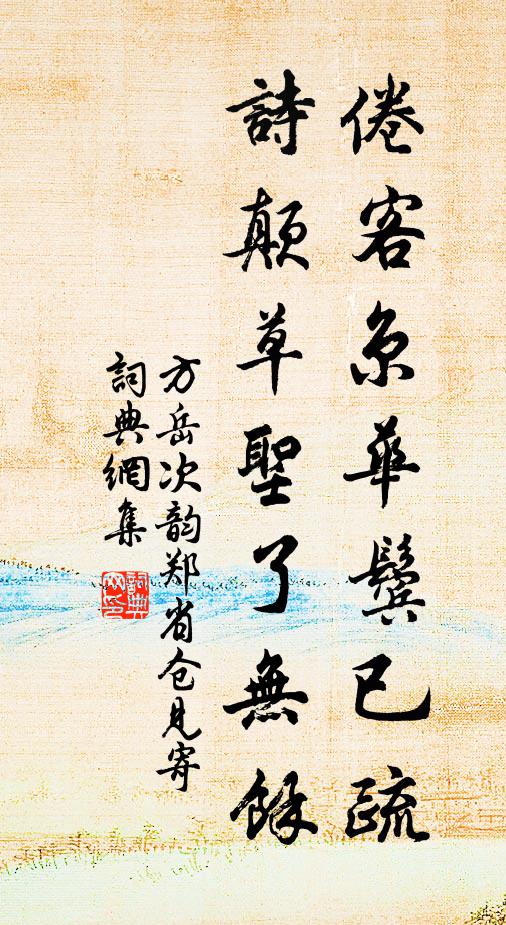 倦客京華鬢已疏
詩顛草聖了無餘
方岳次韵郑省仓見寄
詞典網集